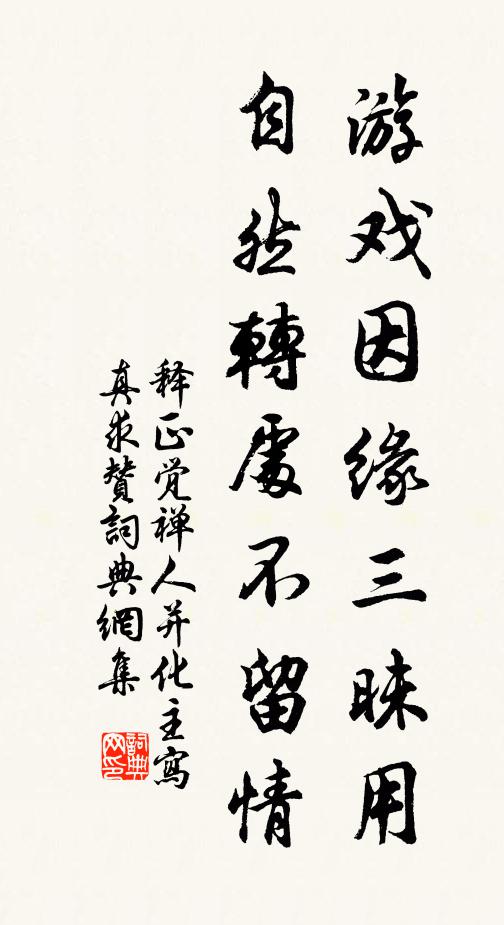 游戏因缘三昧用
自然轉處不留情
释正觉禅人并化主寫
真求贊詞典網集
詞典
网印